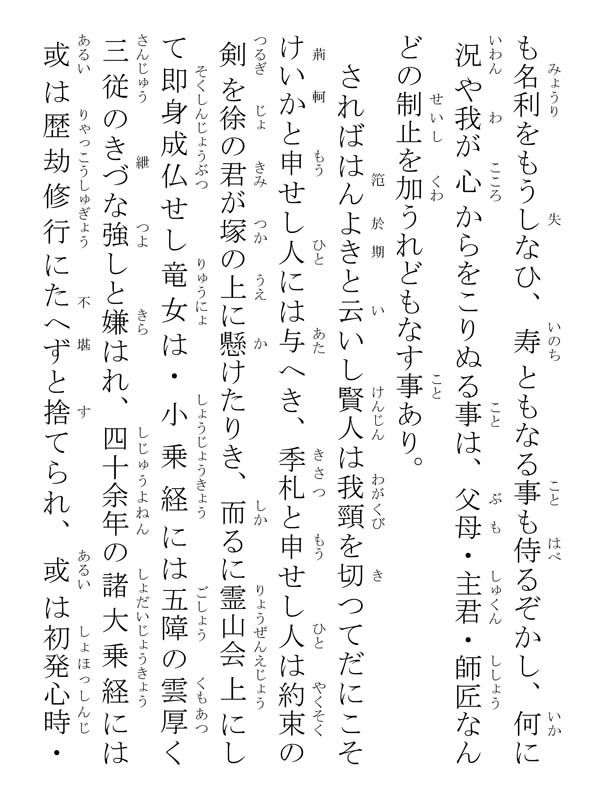 も名利をもうしなひ、寿ともなる事も侍るぞかし、何に
況や我が心からをこりぬる事は、父母・主君・師匠なん
どの制止を加うれどもなす事あり。
さればはんよきと云いし賢人は我頸を切つてだにこそ
けいかと申せし人には与へき、季札と申せし人は約束の
剣を徐の君が塚の上に懸けたりき、而るに霊山会上にし
て即身成仏せし竜女は・小乗経には五障の雲厚く
三従のきづな強しと嫌はれ、四十余年の諸大乗経には
或は歴劫修行にたへずと捨てられ、或は初発心時・